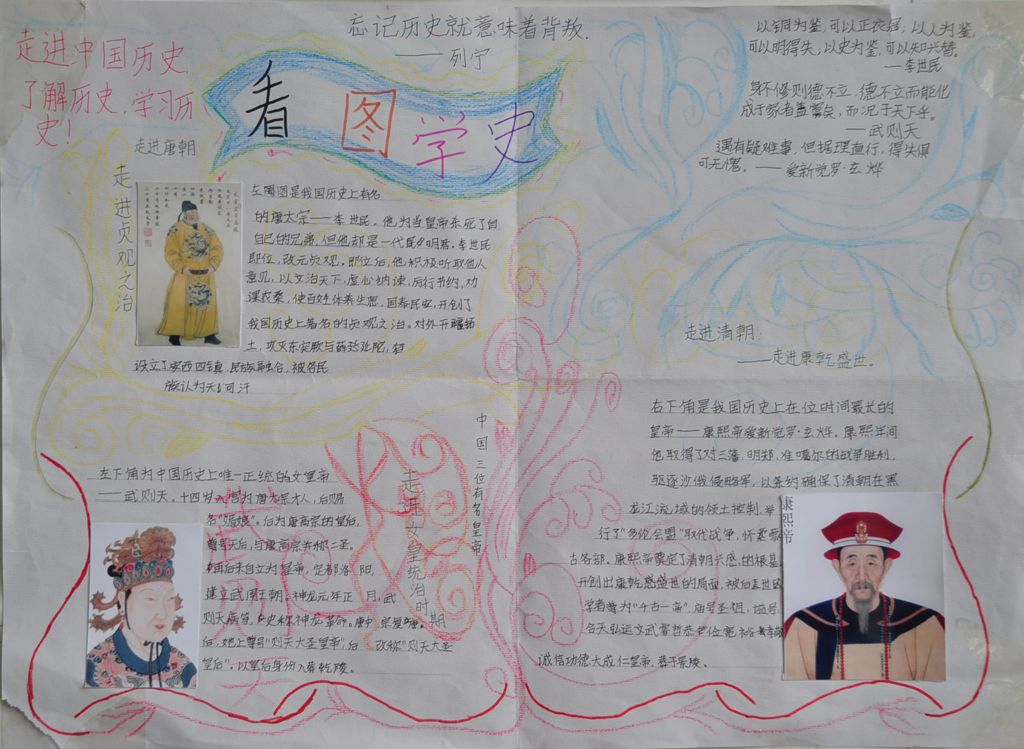 走进中国历史,
了解历史,学习历
史!
忘记历史就意味着背叛.
——列宁
看图学史
以铜为鉴,可以正衣冠;以人为鉴,
可以明得失;以史为鉴,可以知兴替。
——李世民
身不修则德不立,德不立而能化
成于家者盖寡矣,而况于天下乎。
——武则天
遇有疑难事,但据理直行,得失俱
可无愧。——爱新觉罗·玄烨
走进唐朝
走进贞观之治
左图是我国历史上有名
的唐太宗——李世民。他为当皇帝杀死了自
自己的兄弟,但他却是一代明君。李世民
即位,改元贞观。即位后,他积极听取他人
意见,以文治天下,虚心纳谏,厉行节约,劝
课农桑,使百姓休养生息,国泰民安,开创了
我国历史上著名的贞观之治。对外开疆拓
土,攻灭东突厥与薛延陀,
设立了安西四镇,民族融合,被各民
族认为天可汗
走进清朝.
——走进康乾盛世。
右下角是我国历史上在位时间最长的
皇帝——康熙帝爱新觉罗·玄烨。康熙年间
他取得了对三藩,明郑,准噶尔的战争胜利,
驱逐沙俄侵略军,以条约确保了清朝在黑
龙江流域的领土控制.举
行了“多伦会盟”取代战争,怀柔蒙
古各部。康熙帝奠定了清朝兴盛的根基,
开创出康乾盛世的局面,被后世
学者尊为“千古一帝”.庙号圣祖,谥号
合天弘运文武睿哲恭俭宽裕孝敬
诚信功德大成仁皇帝.葬于景陵。
康熙帝
中国三位有名皇帝
走进女皇统治时期
左下角为中国历史上唯一正统的女皇帝
——武则天。十四岁入宫为唐太宗才人,后赐
名“媚娘”。后为唐高宗的皇后,
尊号天后,与唐高宗并称二圣。
后来自立为皇帝,定都洛阳,
建立武周王朝。神龙元年正月,武
则天病笃,史称神龙革命。唐中宗复辟
后,她上尊号“则天大圣皇帝”,后改称“则天大圣
皇后”。以皇后身份入葬乾陵。